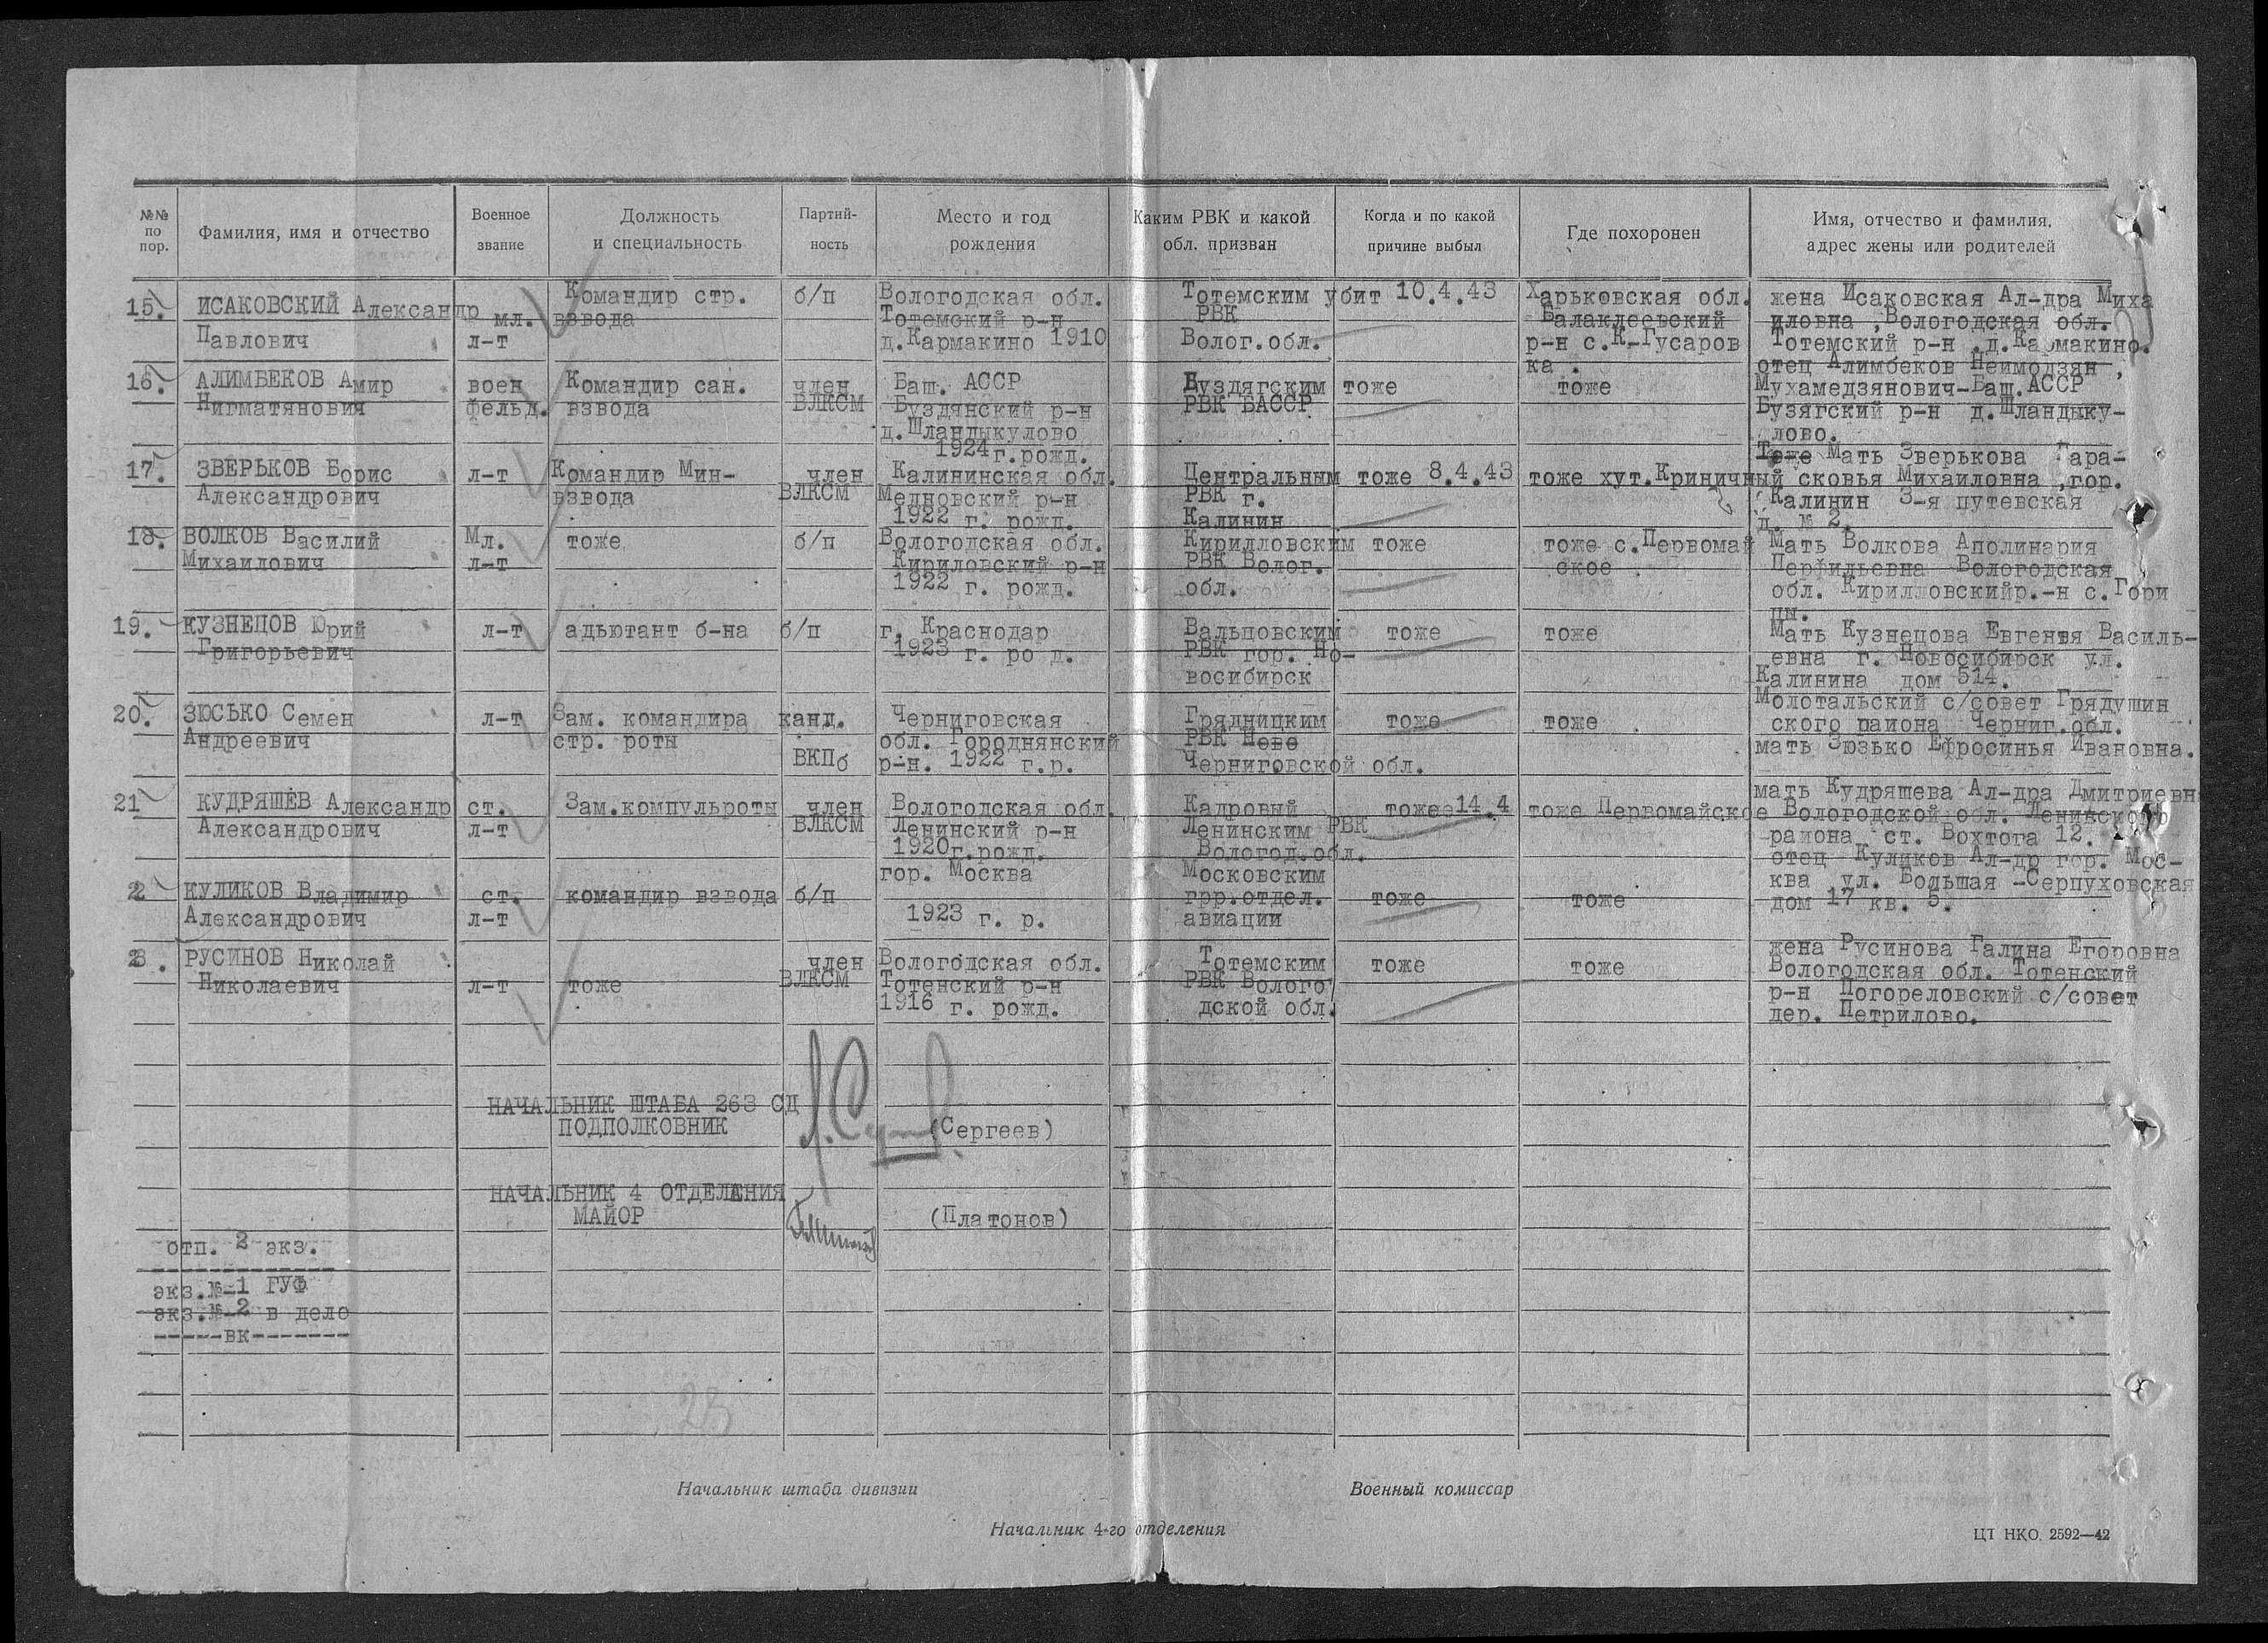 №№ по пор.
Фамилия, имя и отчество
Военное звание
Должность и специальность
Партий- ность
Место и год рождения
Каким РВК и какой обл. призван
Когда и по какой причине выбыл
Где похоронен
Имя, отчество и фамилия, адрес жены или родителей
15. ИСАКОВСКИЙ Александр
Павлович
мл.
л-т
Командир стр.
взвода
б/п
Вологодская обл.
Тотемский р-н
д.Кармакино 1910
Тотемским
РВК
Волог.обл.
убит 10.4.43
Харьковская обл.
Балаклеевский
р-н с.К-Гусаров
ка .
жена Исаковская Ал-дра Миха
иловна ,Вологодская обл.
Тотемский р-н .д.Кармакино.
16. АЛИМБЕКОВ Амир
Нигматянович
воен
фельд.
Командир сан.
взвода
член
ВЛКСМ
Баш. АССР
Буздянский р-н
д.Шландыкулово
1924г.рожд.
Буздягским
РВК БАССР
тоже
тоже
отец Алимбеков Неимодзян ,
Мухамедзянович-Баш.АССР
Бузягский р-н д.Шландыку-
лово.
17. ЗВЕРЬКОВ Борис
Александрович
л-т
Командир Мин-
взвода
член
ВЛКСМ
Калининская обл.
Медновский р-н
1922 г. рожд.
Центральным
РВК г.
Калинин
тоже 8.4.43
тоже хут.Криничный
Тоже Мать Зверькова Тара-
сковья Михаиловна ,гор.
Калинин 3-я путевская
д. № 2.
18. ВОЛКОВ Василий
Михаилович
Мл.
л-т
тоже
б/п
Вологодская обл.
Кириловский р-н
1922 г. рожд.
Кирилловским
РВК Волог.
обл.
тоже
тоже с.Первомай
ское .
Мать Волкова Аполинария
Перфильевна Вологодская
обл. Кирилловскийр.-н с.Гори
цы.
19. КУЗНЕЦОВ Юрий
Григорьевич
л-т
адьютант б-на
б/п
г. Краснодар
1923 г. ро д.
Вальцовским
РВК гор. Но-
восибирск
тоже
тоже
Мать Кузнецова Евгения Василь-
евна г. Новосибирск ул.
Калинина дом 514.
20. ЗЮСЬКО Семен
Андреевич
л-т
Зам. командира
стр. роты
канд.
ВКПб
Черниговская
обл. Городнянский
р-н. 1922 г.р.
Грядницким
РВК
Черниговской обл.
тоже
тоже
Молотальский с/совет Грядушин
ского района Черниг.обл.
мать Зюзько Ефросинья Ивановна.
21 КУДРЯШЕВ Александр
Александрович
ст.
л-т
Зам.компульроты
член
ВЛКСМ
Вологодская обл.
Ленинский р-н
1920г.рожд.
Кадровый
Ленинским РВК
Вологод.обл.
тожее14.4
тоже Первомайское
мать Кудряшева Ал-дра Дмитриевн
Вологодской обл. Ленинского
района ст. Вохтога 12.
2 КУЛИКОВ Владимир
Александрович
ст.
л-т
командир взвода
б/п
гор. Москва
1923 г. р.
Московским
грр.отдел.
авиации
тоже
тоже
отец Куликов Ал-др гор. Мос-
ква ул. Большая -Серпуховская
дом 17 кв. 5.
23. РУСИНОВ Николай
Николаевич
л-т
тоже
член
ВЛКСМ
Вологодская обл.
Тотенский р-н
1916 г. рожд.
Тотемским
РВК Волого
дской обл.
тоже
тоже
жена Русинова Галина Егоровна
Вологодская обл. Тотенский
р-н Погореловский с/совет
дер. Петрилово.
НАЧАЛЬНИК ШТАБА 263 СД
ПОДПОЛКОВНИК
(Сергеев)
НАЧАЛЬНИК 4 ОТДЕЛЕНИЯ
МАЙОР
(Платонов)
отп. 2 экз.
экз.№-1 ГУФ
экз.№-2 в дело
-----вк-------
23
Начальник штаба дивизии
Военный комиссар
Начальник 4-го отделения
ЦТ НКО. 2592—42